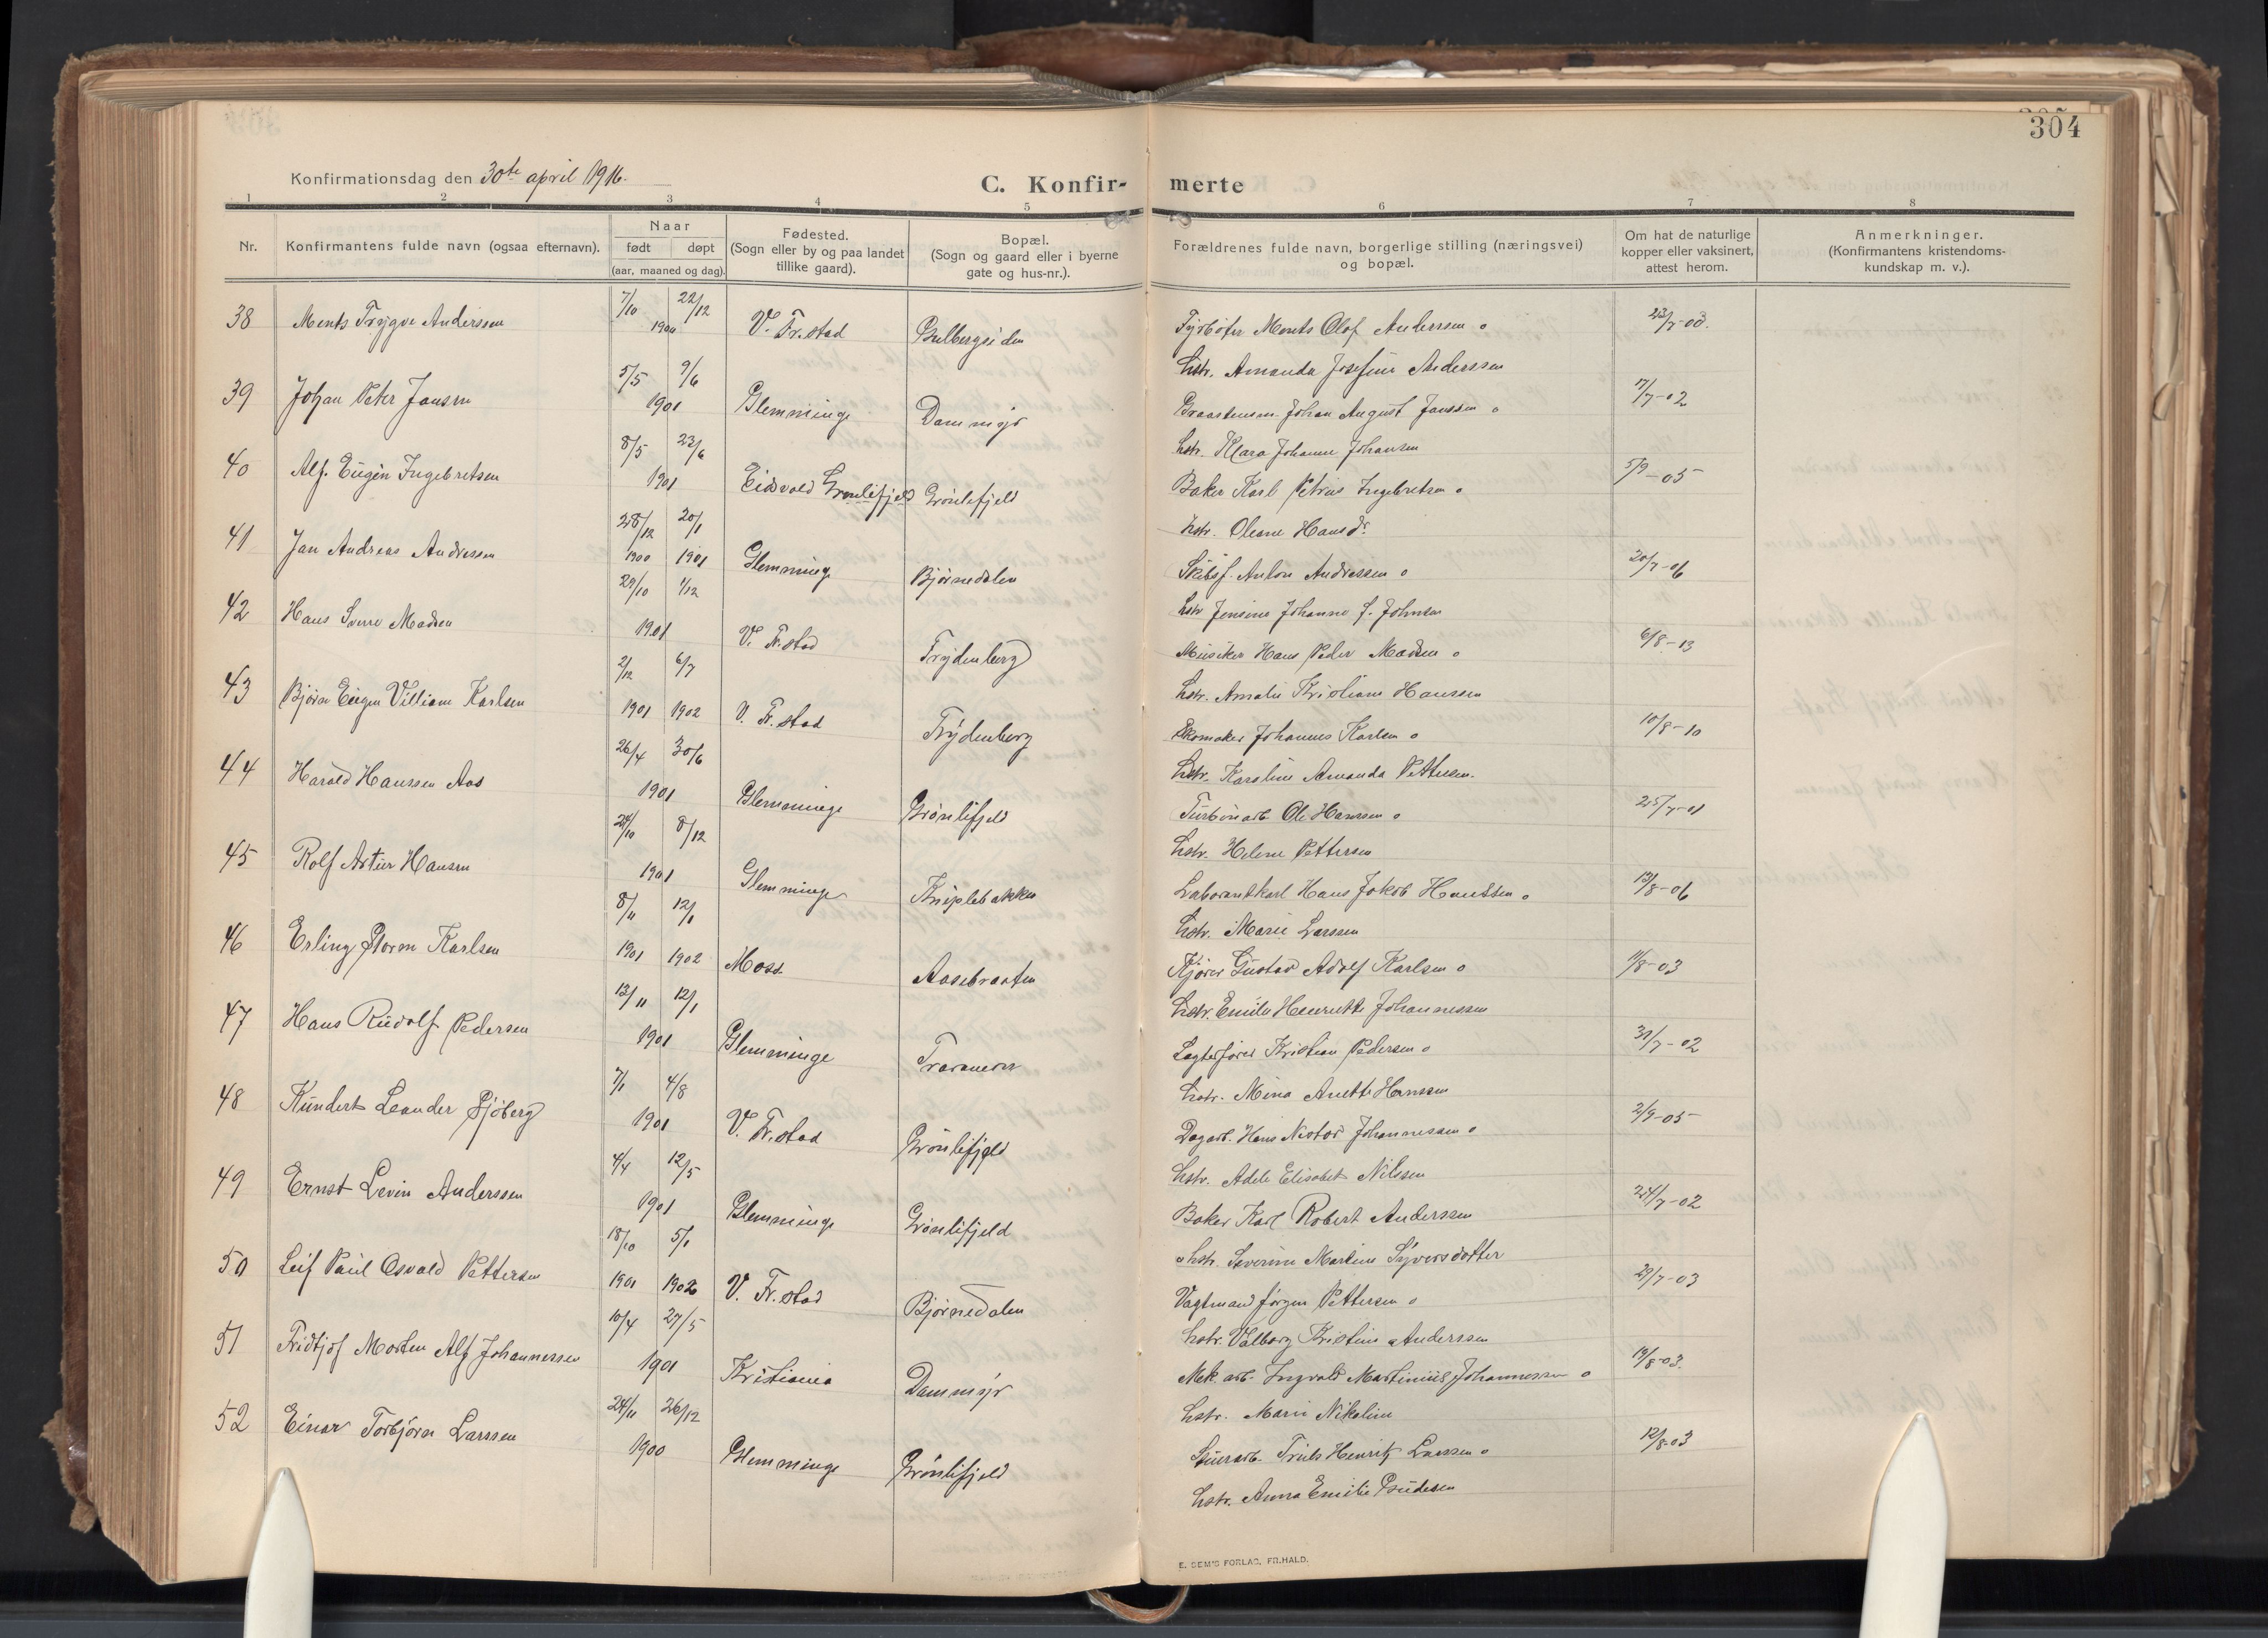 304
Konfirmationsdag den 30te april 1916.
C. Konfir- merte
1 2 3 4 5 6 7 8
Nr.
Konfirmantens fulde navn (ogsaa efternavn).
Naar
født døpt
(aar, maaned og dag).
Fødested.
(Sogn eller by og paa landet
tillike gaard).
Bopæl.
(Sogn og gaard eller i byerne
gate og hus-nr.).
Forældrenes fulde navn, borgerlige stilling (næringsvei)
og bopæl.
Om hat de naturlige
kopper eller vaksinert,
attest herom.
Anmerkninger.
(Konfirmantens kristendoms-
kundskap m. v.).
38 Ments Trygve Anderssen 7/10 22/12 1900 V. Fr.stad Fyrbøter Ments Olof Anderssen o
hstr. Amanda Josefine Anderssen
39 Johan Peter Jansen 5/5 9/6 1901 Glemminge Dammyr Johan August Janssen o 7/7-02
hstr. Klara Johanne Johansen
40 Alf Eugen Ingebretsen 8/5 23/6 1901 Eidsvold Grønlifjeld Grønlifjeld Baker Karl Petrus Ingebretsen o 5/9-05
hstr. Olene Hansdr.
41 Jan Andreas Andressen 28/12 1900 20/1 1901 Glemminge Bjørnedalen Skibsf. Anton Andressen o 20/7-06
hstr Jensine Johanne f. Johnsen
42 Hans Sverre Madsen 29/10 1/12 1901 V. Fr.stad Trydenberg Musiker Hans Peder Madsen o 6/8-13
hstr. Amalie Kristiane Hanssen
43 Bjørn Eugen Villiam Karlsen 2/12 1901 6/7 1902 V. Fr.stad Trydenberg Skomaker Johannes Karlsen o 10/8-10
hstr. Karoline Amanda Pettersen.
44 Harald Hanssen Aas 26/4 30/6 1901 Glemminge Grønlifjeld Ole Hanssen o 25/7-01
hstr. Helene Pettersen
45 Rolf Artur Hansen 24/10 8/12 1901 Glemminge Kniplebakken Laborantkarl Hans Jakob Hanssen o 13/8-06
hstr. Marie Larssen
46 Erling Storm Karlsen 8/11 1901 12/1 1902 Moss Aasebraaten Kjører Gustav Adolf Karlsen o 11/8-03
hstr. Emilie Henriette Johannessen
47 Hans Rudolf Pedersen 13/11 12/1 1901 Glemminge Traraneren Lægterfører Kristian Pedersen o 31/7-02
hstr. Mina Anette Hanssen
48 Kundert Leander Sjøberg 7/1 4/8 1901 V. Fr.stad Grønlifjeld Dagarb. Hans Nestor Johannessen o 2/9-05
hstr. Adele Elisabet Nilssen
49 Ernst Levin Anderssen 4/4 12/5 1901 Glemminge Grønlifjeld Baker Karl Robert Anderssen 24/7-02
o hstr. Severine Martine Syversdotter
50 Leif Paul Osvald Pettersen 18/10 1901 5/1 1902 V. Fr.stad Bjørnedalen Vagtmand Jørgen Pettersen o 29/7-03
hstr. Valborg Kristine Anderssen
51 Fridtjof Morten Alf Johannessen 10/4 27/5 1901 Kristiania Dammyr Mek. arb. Ingvald Martinius Johannessen o 19/8-03.
hstr. Marie Nikoline
52 Einar Torbjørn Larssen 24/11 26/12 1900 Glemminge Grønlifjeld Truls Henrik Larssen o 12/8-03
hstr. Anna Emilie
E. SEM'S FORLAG, FR.HALD.